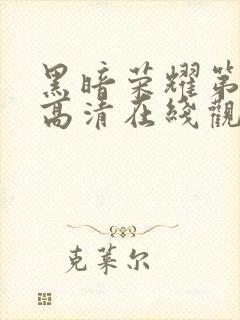 黑暗荣耀第
高清在线觀
克莱尔